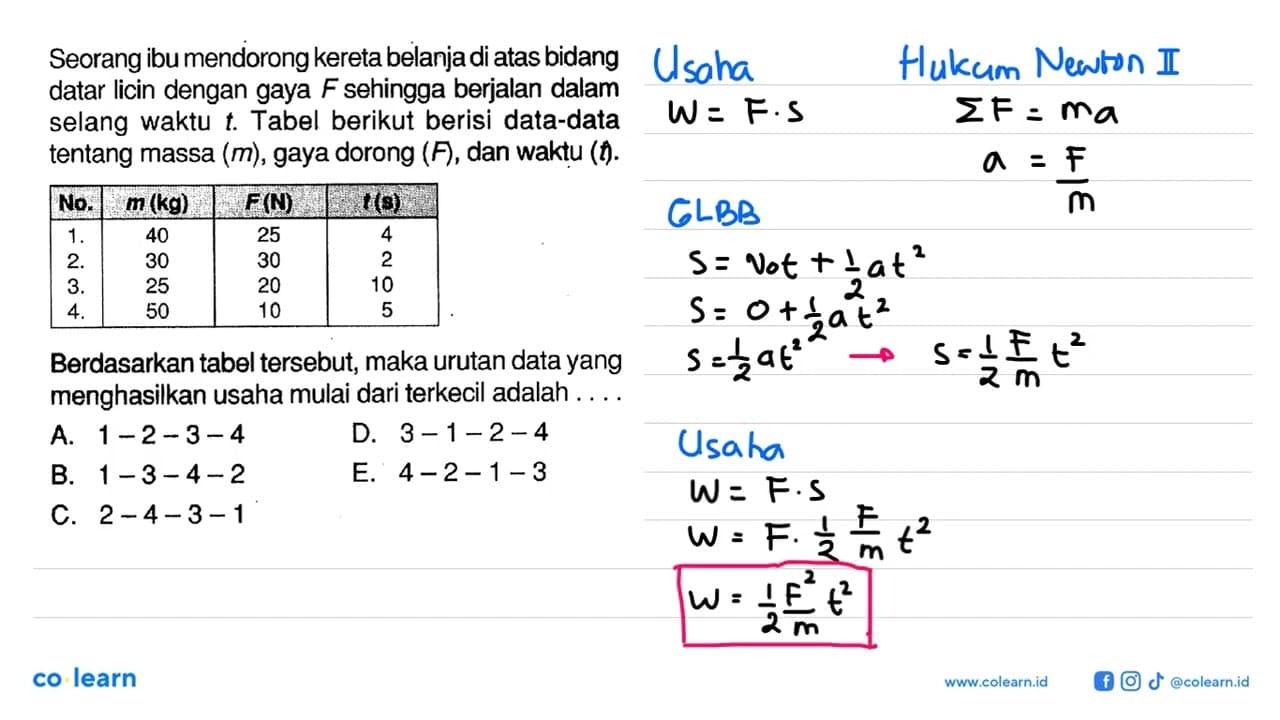 Seorang ibu mendorong kereta belanja di atas bidang
datar licin dengan gaya F sehingga berjalan dalam
selang waktu t. Tabel berikut berisi data-data
tentang massa (m), gaya dorong (F), dan waktu (t).
No. m (kg) F (N) t (s)
1. 40 25 4
2. 30 30 2
3. 25 20 10
4. 50 10 5
Berdasarkan tabel tersebut, maka urutan data yang
menghasilkan usaha mulai dari terkecil adalah . . . .
A. 1 – 2 – 3 – 4
B. 1 – 3 – 4 – 2
C. 2 – 4 – 3 – 1
D. 3 – 1 – 2 – 4
E. 4 – 2 – 1 – 3
Usaha
W = F . s
Hukum Newton II
ΣF = ma
a = F/m
GLBB
s = v₀t + 1/2 at²
s = 0 + 1/2 at²
s = 1/2 at² → s = 1/2 F/m t²
Usaha
W = F . s
W = F . 1/2 F/m t²
W = 1/2 F²/m t²
co learn
www.colearn.id
@colearn.id